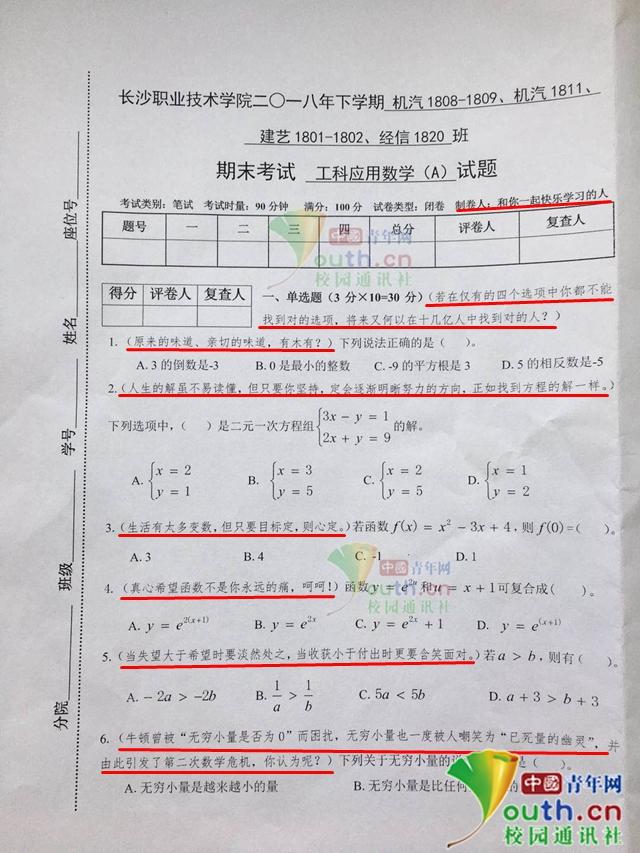 长沙职业技术学院二〇一八年下学期 机汽1808-1809、机汽1811、
建艺1801-1802、经信1820 班
期末考试 工科应用数学（A）试题
考试类别：笔试 考试时量：90分钟 满分：100分 试卷类型：闭卷 制卷人：和你一起快乐学习的人
题号 一 二 三 四 总分 评卷人 复查人
得分
中國青年网
youth.cn
校园通讯社
得分 评卷人 复查人
一、单选题（3分×10=30分）（若在仅有的四个选项中你都不能
找到对的选项，将来又何以在十几亿人中找到对的人？）
1.（原来的味道、亲切的味道，有木有？）下列说法正确的是（ ）。
A. 3的倒数是-3 B. 0是最小的整数 C. -9的平方根是3 D. 5的相反数是-5
2.（人生的解虽不易读懂，但只要你坚持，定会逐渐明晰努力的方向，正如找到方程的解一样。）
下列选项中，（ ）是二元一次方程组{3x − y = 1 2x + y = 9 的解。
A. {x = 2 y = 1 B. {x = 3 y = 5 C. {x = 2 y = 5 D. {x = 1 y = 2
3.（生活有太多变数，但只要目标定，则心定。）若函数 f(x) = x² − 3x + 4，则 f(0)=（ ）。
A. 3 B. 4 C. -1 D. 1
中國青年网
youth.cn
校园通讯社
4.（真心希望函数不是你永远的痛，呵呵！）函数 y = e²ᵘ 和 u = x + 1 可复合成（ ）。
A. y = e^{2(x+1)} B. y = e^{2x} C. y = e^{2x} + 1 D. y = e^{(x+1)}
5.（当失望大于希望时要淡然处之，当收获小于付出时更要含笑面对。）若 a > b，则有（ ）。
A. − 2a > −2b B. 1/a > 1/b C. 5a < 5b D. a + 3 > b + 3
6.（牛顿曾被“无穷小量是否为0”而困扰，无穷小量也一度被人嘲笑为“已死量的幽灵”，并
由此引发了第二次数学危机，你认为呢？）下列关于无穷小量的说 是（ ）。
A. 无穷小量是越来越小的量 B. 无穷小量是比任何
中國青年网
youth.cn
校园通讯社
分院 班级 学号 姓名 座位号